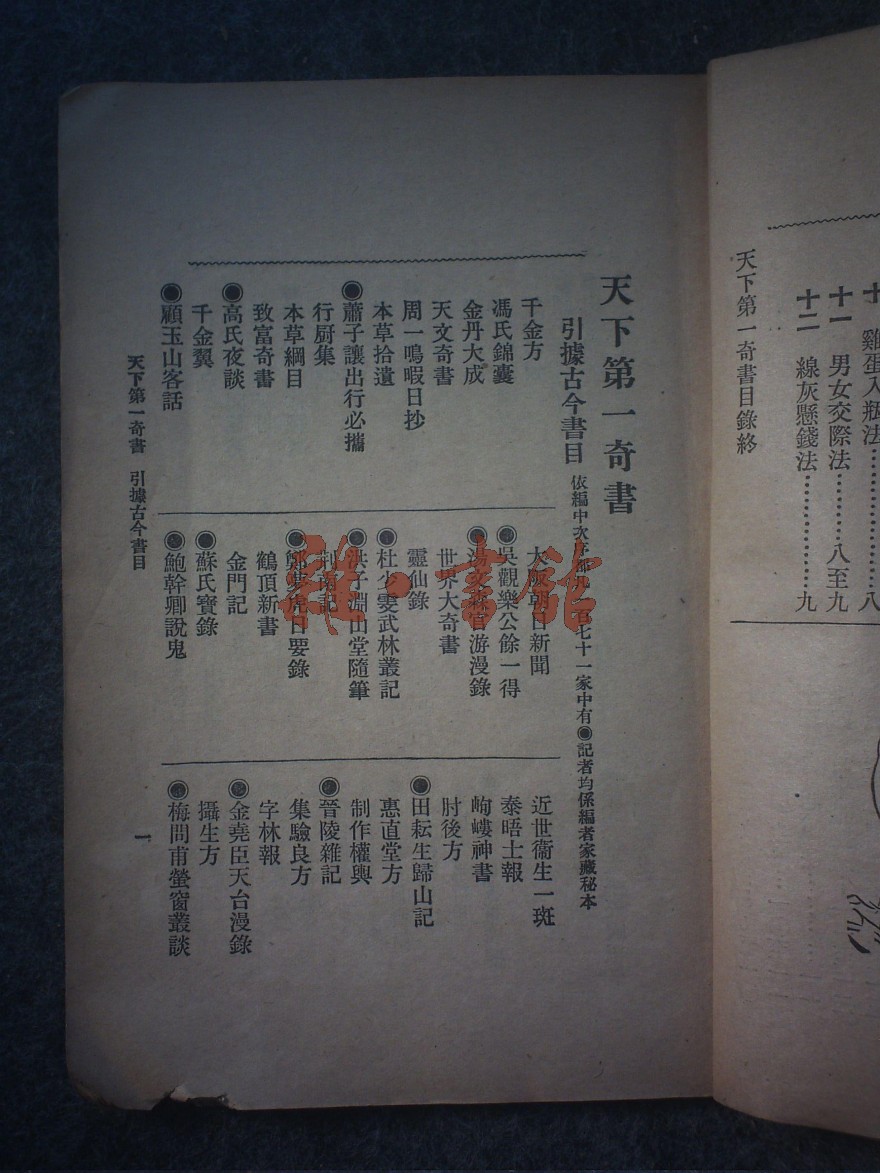 十 雞蛋入瓶法…………八
十一 男女交際法…………八至九
十二 線灰懸錢法…………九
天下第一奇書目錄終
天下第一奇書
引據古今書目 依編中次序都九百七十一家中有◉記者均係編者家藏秘本
千金方
馮氏錦囊
金丹大成
天文奇書
周一鳴暇日抄
本草拾遺
◉蕭子讓出行必攜
行厨集
本草綱目
致富奇書
◉高氏夜談
千金翼
◉顧玉山客話
大阪朝日新聞
◉吳觀樂公餘一得
◉湯文森宦游漫錄
世界大奇書
靈仙錄
◉杜少雯武林叢記
◉洪子淵山堂隨筆
荆南記
◉鄭夢虎日要錄
鶴頂新書
金門記
◉蘇氏寶錄
◉鮑幹卿說鬼
近世衞生一斑
泰晤士報
峋嶁神書
肘後方
◉田耘生歸山記
惠直堂方
制作權輿
◉晉陵雜記
集驗良方
字林報
◉金堯臣天台漫錄
攝生方
◉梅問甫螢窗叢談
天下第一奇書 引據古今書目
一
雜·書館